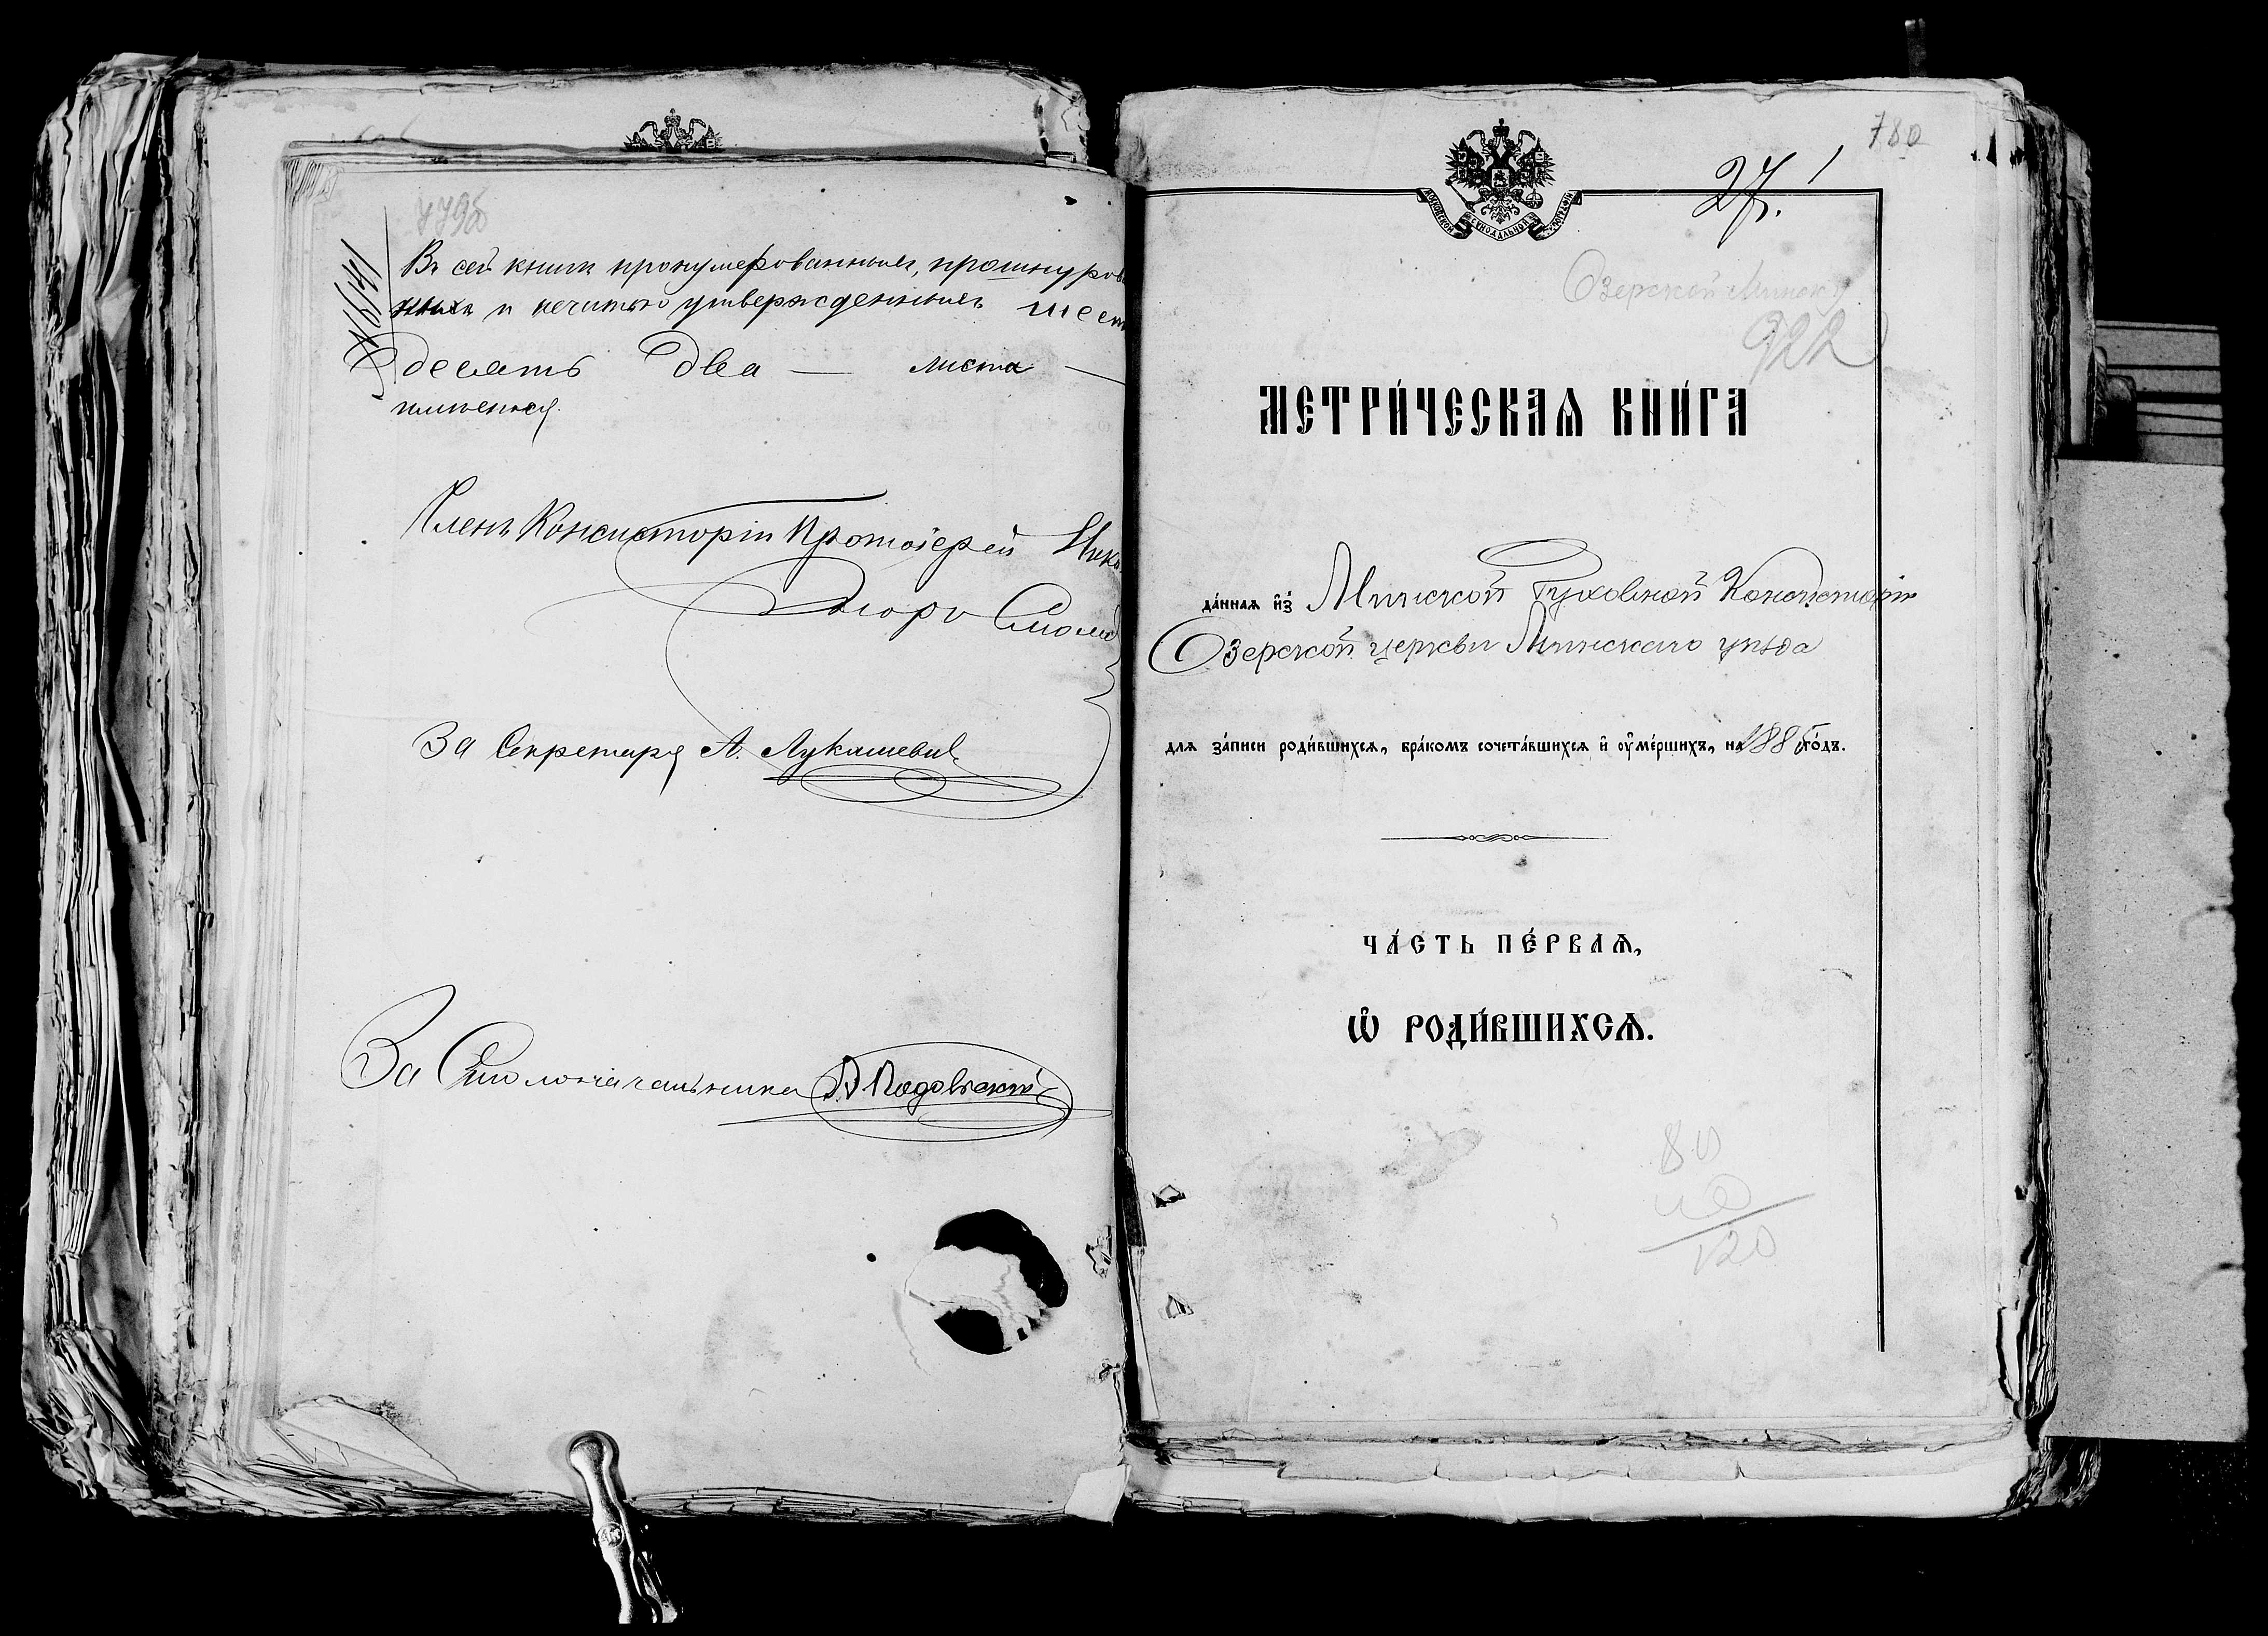 Въ сей книгѣ пронумерованныхъ, прошнуров
ныхъ и печатью утвержденныхъ шест
десятъ два — листа —
имѣется.
Членъ Консисторіи Протоіерей Нико
За Секретаря А. Лукашевич
За Столоначальника
780
27.
1
МОСКОВСКОЙ СѴНОДАЛЬНОЙ ТИПОГРАФІИ
Озерской Минск у
922
МЕТРИ́ЧЕСКАѦ КНИ́ГА
да́ннаѧ и҆зъ Минской Духовной Консисторіи
Озерской церкви Минскаго уѣзда
длѧ за́писи роди́вшихсѧ, бра́комъ сочета́вшихсѧ и҆ ᲂу҆ме́ршихъ, на 1885 го́дъ.
ЧА́СТЬ ПЕ́РВАѦ,
Ѽ РОДИ́ВШИХСѦ.
80
40
120